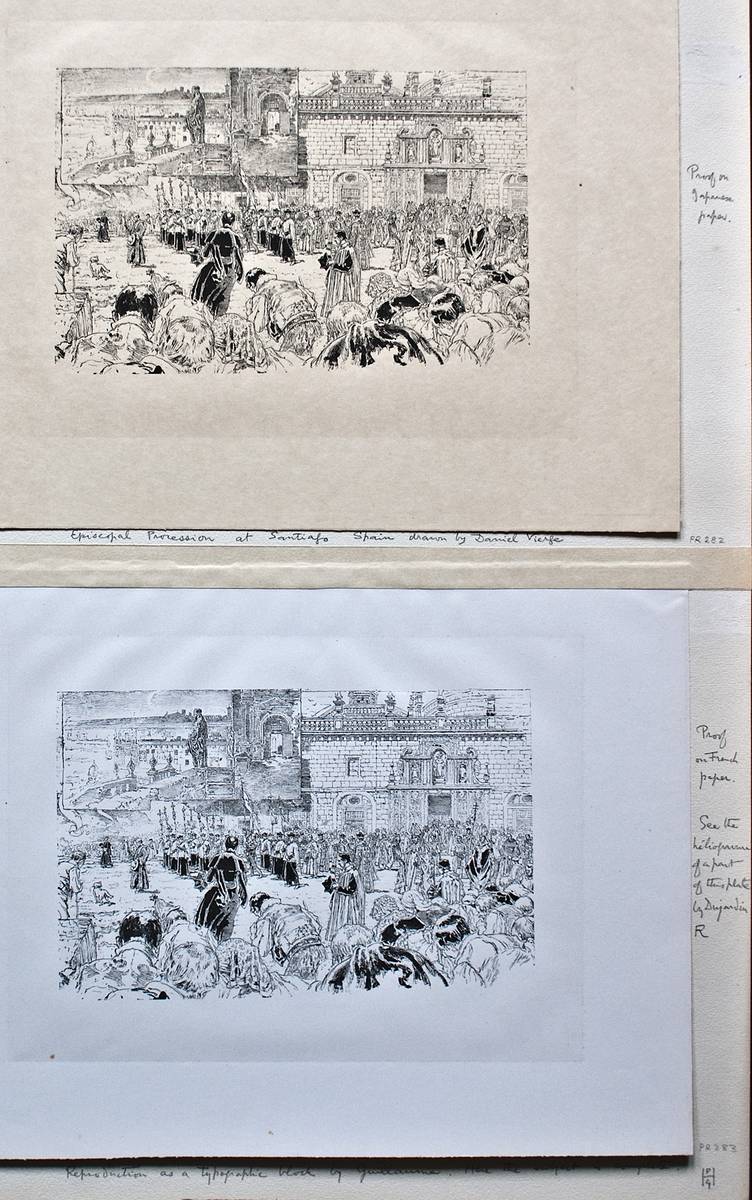 Proof on
Japanese
paper.
Episcopal Procession at Santiago Spain drawn by Daniel Vierge
PR 282
Proof
on French
paper.
See the
héliogravure
of a part
of this plate
by Dujardin
R
PR 283
Reproduction as a typographic block by Guillaume